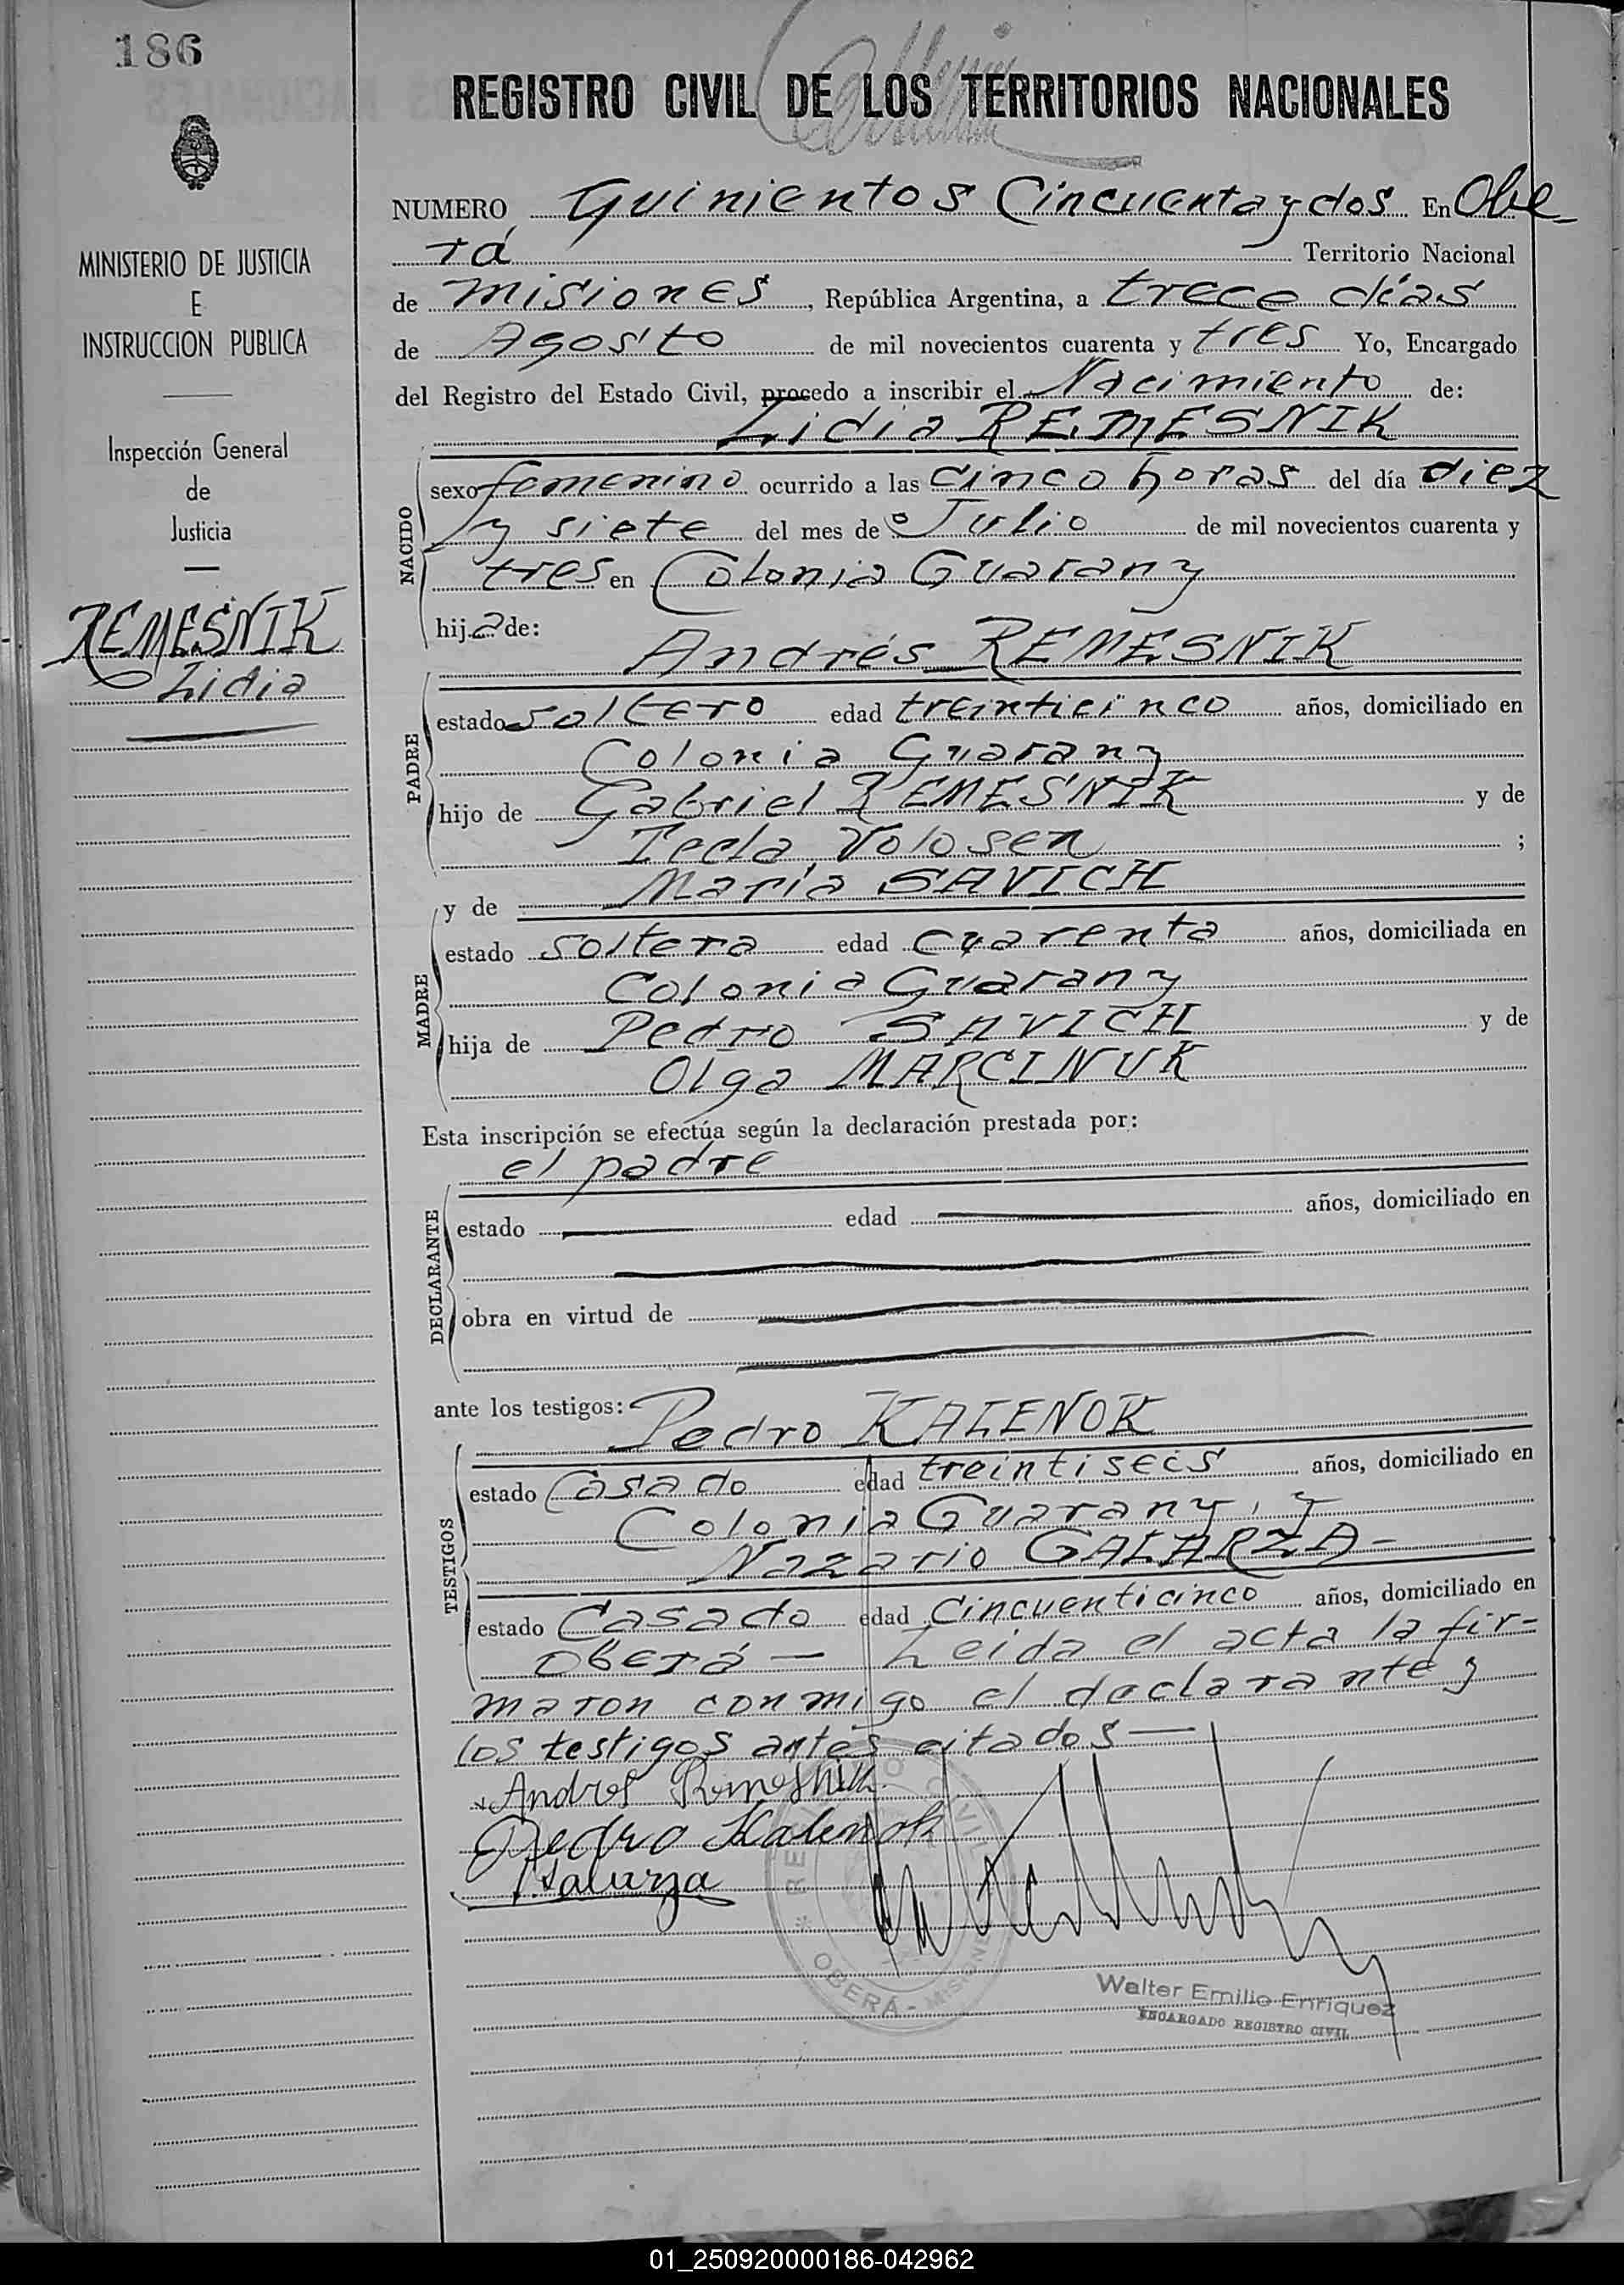 186
REGISTRO CIVIL DE LOS TERRITORIOS NACIONALES
MINISTERIO DE JUSTICIA
E
INSTRUCCION PUBLICA
Inspección General
de
Justicia
REMESNIK
Lidia
NUMERO Quinientos Cincuenta y dos En Obe-
rá Territorio Nacional
de misiones, República Argentina, a trece días
de Agosto de mil novecientos cuarenta y tres Yo, Encargado
del Registro del Estado Civil, procedo a inscribir el Nacimiento de:
Lidia REMESNIK
NACIDO
sexo femenino ocurrido a las cinco horas del día diez
y siete del mes de Julio de mil novecientos cuarenta y
tres en Colonia Guarany
hija de:
Andrés REMESNIK
PADRE
estado soltero edad treinticinco años, domiciliado en
Colonia Guarany
hijo de Gabriel REMESNIK y de
Tecla Volosen ;
y de María SAVICH
MADRE
estado soltera edad cuarenta años, domiciliada en
Colonia Guarany
hija de Pedro SAVICH y de
Olga MARCINUK
Esta inscripción se efectúa según la declaración prestada por:
el padre
DECLARANTE
estado edad años, domiciliado en
obra en virtud de
ante los testigos: Pedro KALENOK
TESTIGOS
estado Casado edad treintiseis años, domiciliado en
Colonia Guarany, y
Nazario GALARZA-
estado Casado edad Cincuenticinco años, domiciliado en
Oberá — Leida el acta la fir=
maron conmigo el declarante y
los testigos antes citados —
Andres Remesnik
Pedro Kalenok
Galarza
REGISTRO CIVIL
OBERÁ - MISIONES
Walter Emilio Enriquez
ENCARGADO REGISTRO CIVIL
01_250920000186-042962